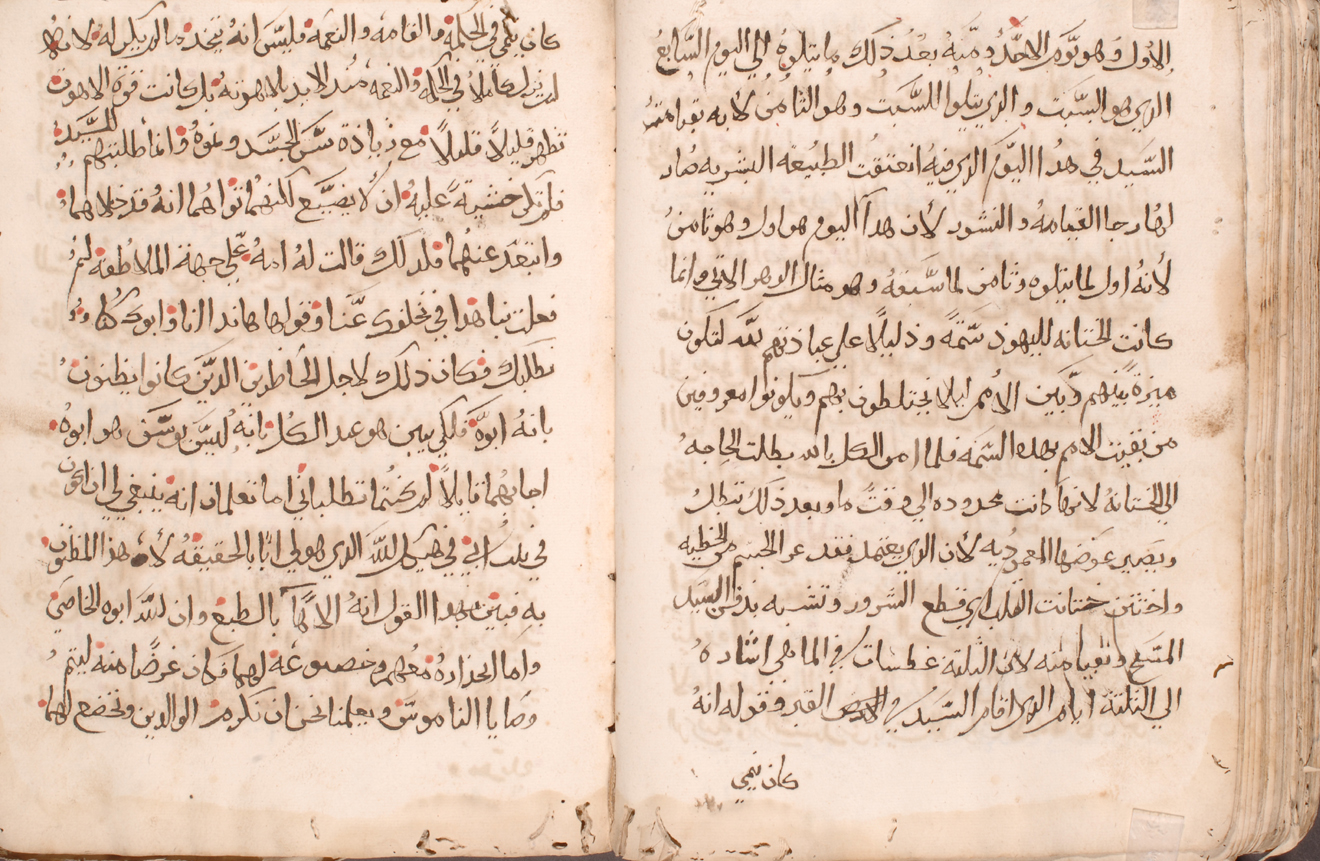 الاول وهو يوم الاحد ومنه بعد ذلك ما يتلوه الي اليوم السابع
الدي هو السبت والدي يتلوا للسبت وهو الثامن لانه بقيامة
السيد في هدا اليوم الدي فيه انعتقت الطبيعه البشريه صار
لها رجا القيامه والنشور لان هدا اليوم هو اول وهو ثامن
لانه اول لما يتلوه وثامن لما سبقه وهو مثال الدهر الاتي وانما
كانت الختانه لليهود سمة ودليلا علي عبادتهم لله لتكون
ميزة بينهم وبين الامم ليلا يختلطون بهم ويكونوا معروفين
من بقيت الامم بهده السمه فلما امن الكل بالله بطلت الحاجه
الي الختانه لانها كانت محدوده الي وقت ما وبعد ذلك تبطل
ويصير عوضها المعموديه لان الدي يعتمد فقد عر الجسم من الخطيه
واختتن ختانت القلب اي قطع الشرور وتشبه بدفن السيد
المسيح وبقيامته لان الثلتة غطسات في الما هي اشاره
الي الثلتة ايام الدي اقام السيد في القبر وقوله انه
كان ينمي
كان ينمي في الحكمه والقامه والنعمه فليس انه يتخد ما لم يكن له لانه
لم يزل كاملا في الحكمه والنعمه مند الابد بلاهوته بل كانت قوة الاهوت
تظهر قليلا قليلا مع زيادة سن الجسد ونموه وانما طلبتهم للسيد
فلم تكن خشية عليه ان لا يضيع لكنهما توهما انه قد خلاهما
وابتعد عنهما فلدلك قالت له امه علي جهة الملاطفه لم
فعلت بنا هدا في تخلفك عنا وقولها هاندا انا وابوك كنا
نطلبك فكان ذلك لاجل الحاضرين الدين كانوا يظنون
بانه ابوه فلكي يبين هو عند الكل بانه ليس يوسف هو ابوه
اجابهما قايلا لم كنتما تطلباني اما تعلمان انه ينبغي لي ان اكون
في بيت ابي في هيكل الله الدي هو لي ابا بالحقيقه لا هدا المظنون
به فبين بهدا القول انه الاها بالطبع وان لله ابوه الخاصي
واما انحداره معهم وخضوعه لهما فكان غرضا منه ليتم
وصايا الناموس ويعلمنا نحن ان نكرم الوالدين ونخضع لهما